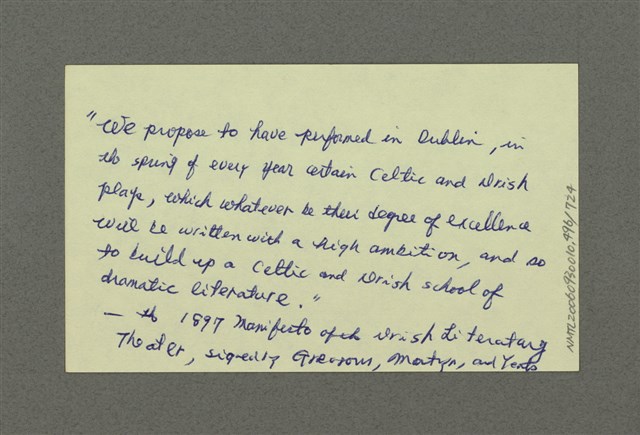 "We propose to have performed in Dublin, in
the spring of every year certain Celtic and Irish
plays, which whatever be their degree of excellence
will be written with a high ambition, and so
to build up a Celtic and Irish school of
dramatic literature."
— the 1897 Manifesto of the Irish Literary
Theater, signed by Gregory, Martyn, and Yeats
NMTL20060930010.496/724